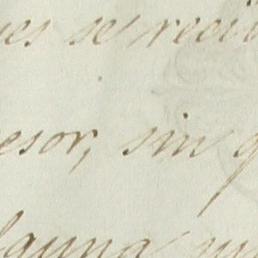 es se reci
esor, sin q
lguna